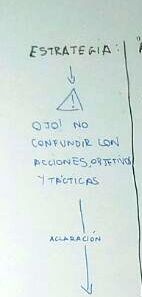 ESTRATEGIA:
OJO! NO
CONFUNDIR CON
ACCIONES, OBJETIVOS
Y TÁCTICAS
ACLARACIÓN